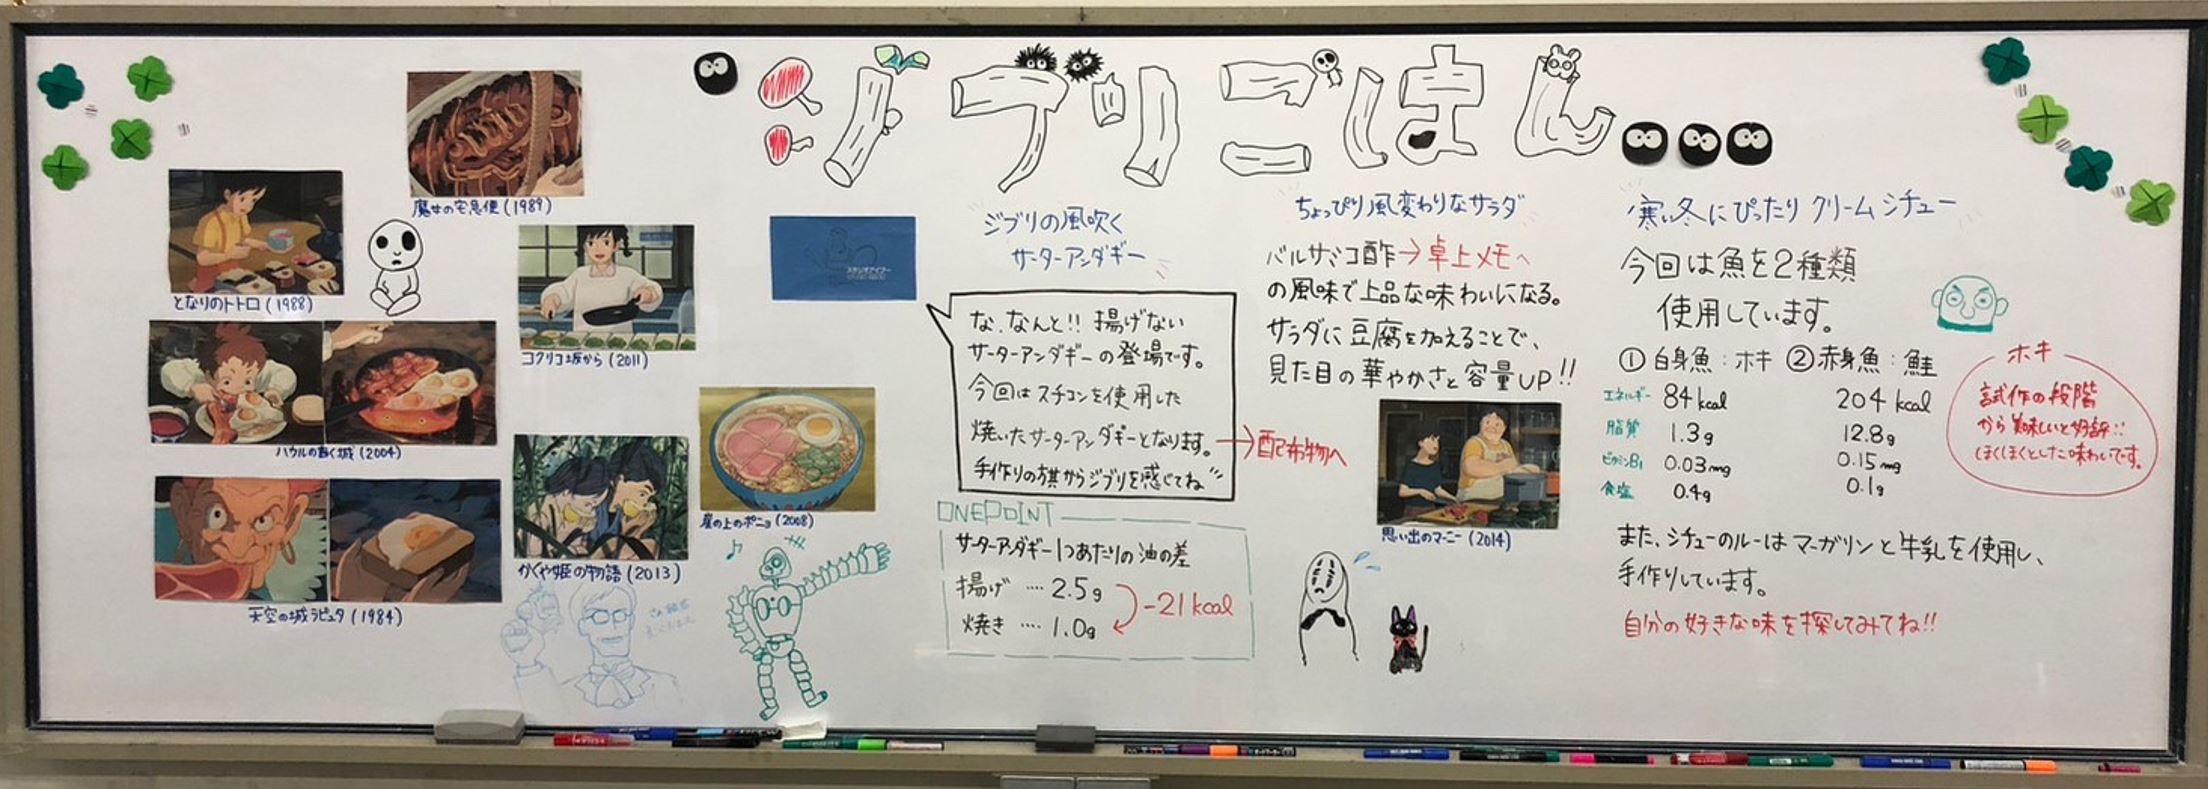 ジブリごはん
魔女の宅急便(1989)
となりのトトロ(1988)
コクリコ坂から(2011)
ハウルの動く城(2004)
崖の上のポニョ(2008)
かぐや姫の物語(2013)
天空の城ラピュタ(1984)
ジブリの風吹く
サーターアンダギー
な、なんと!! 揚げない
サーターアンダギーの登場です。
今回はスチコンを使用した
焼いたサーターアンダギーとなります。→配布物へ
手作りの旗からジブリを感じてね
ONEPOINT
サーターアンダギー1つあたりの油の差
揚げ …. 2.5g
焼き …. 1.0g
-21kcal
ちょっぴり風変わりなサラダ
バルサミコ酢→卓上メモへ
の風味で上品な味わいになる。
サラダに豆腐を加えることで、
見た目の華やかさと容量UP!!
思い出のマーニー(2014)
寒い冬にぴったり クリームシチュー
今回は魚を2種類
使用しています。
①白身魚:ホキ ②赤身魚:鮭
エネルギー 84kcal 204kcal
脂質 1.3g 12.8g
ビタミンB1 0.03mg 0.15mg
食塩 0.4g 0.1g
ホキ
試作の段階
から美味しいと好評!!
ほくほくとした味わいです。
また、シチューのルーはマーガリンと牛乳を使用し、
手作りしています。
自分の好きな味を探してみてね!!